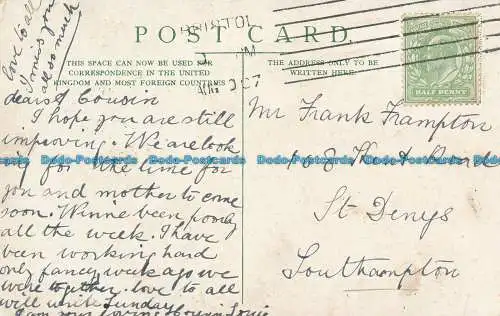 POST CARD.
THIS SPACE CAN NOW BE USED FOR
CORRESPONDENCE IN THE UNITED
KINGDOM AND MOST FOREIGN COUNTRIES
THE ADDRESS ONLY TO BE
WRITTEN HERE.
BRISTOL
OC 7
HALF PENNY
love to all
I miss you
all so much
dearest Cousin
I hope you are still
improving. We are look
ing for the time for
you and mother to come
soon. Winne been poorly
all the week. I have
been working hard
only fancy week ago we
were together. love to all
will write Sunday
I am your loving Cousin
Mr Frank Frampton
168
St Denys
Southampton
Dodo-Postcards Dodo-Postcards Dodo-Postcards Dodo-Postcards Dodo-Postcards